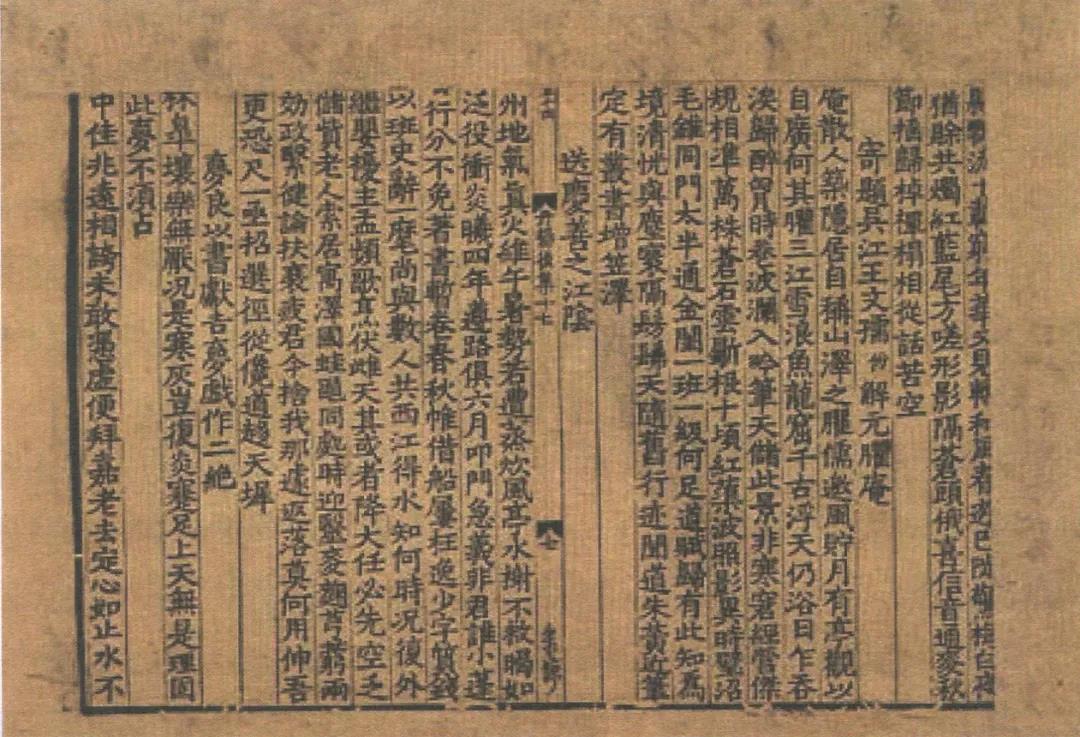 年華又見
猶賒共燭紅藍尾方嗟形影隔蒼頭俄喜信音通麥秋
節榼歸棹擅榻相從話苦空
寄題吳江王文孺份解元臞庵
庵散人築隱居自稱山澤之臞儒邀風貯月有亭觀以
自廣何其臞三江雪浪魚龍窟千古浮天仍浴日乍吞
涘歸醉胷時卷波瀾入吟筆天儲此景非寒窘經營傑
規相準萬株蒼石雲斷根十頃紅蕖波照影異時暨沼
毛錐同門太半通金閨一班一級何足道賦歸有此知焉
境清恍與塵寰隔髣髴天隨舊行迹聞道朱黃近筆
定有叢書增笠澤
送慶善之江陰
州地氣真火維午暑勢若遭蒸炊風亭水榭不救暍如
泛役衝炎曦四年遵路俱六月叩門急義非君誰小蓬
行分不免著書暫卷春秋帷借船屢枉逸少字質錢
以班史辭一麾尚與數人共西江得水知何時况復外
繼嬰擾主孟頻歌扊扅雌天其或者降大任必先空乏
儲貲老人索居寓澤國蛙黽同處時迎毉麥麴芎藭兩
効政繫健論扶衰疲君今捨我那遽返落莫何用伸吾
更恐尺一亟招選徑從儳道趨天墀
夢良以書獻吉夢戲作二絶
林臯壤樂無厭况是寒灰豈復炎蹇足上天無是理圓
此夢不須占
中佳兆遠相誇未敢憑虛便拜嘉老去定心如止水不